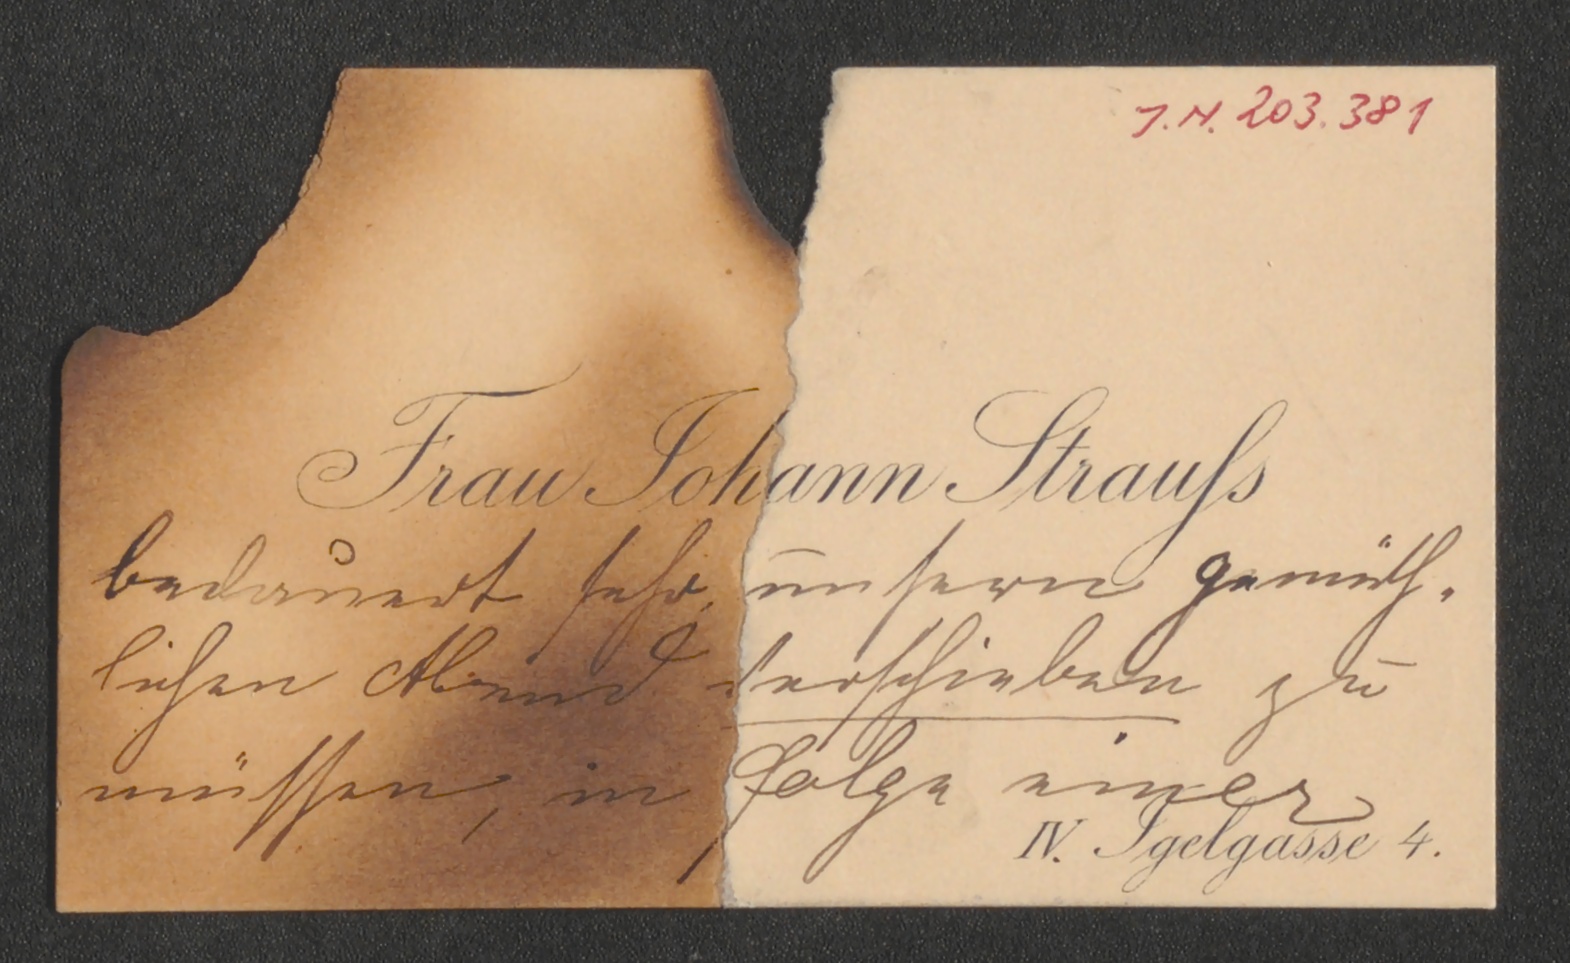 J.N. 203.381
Frau Johann Strauſs
bedauert sehr, unsern gemüth-
lichen Abend verschieben zu
müssen, in folge einer
IV. Igelgasse 4.